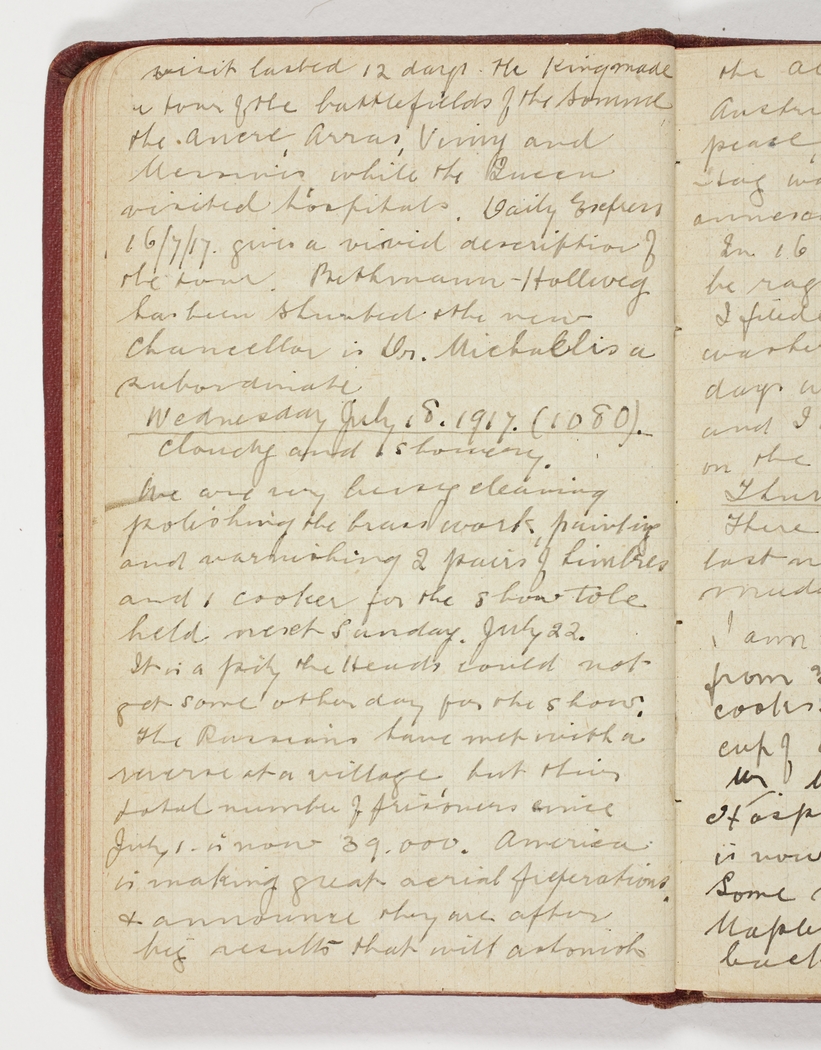 visit lasted 12 days. The King made
a tour of the battlefields of the Somme
the Ancre, Arras, Vimy and
Messines while the Queen
visited hospitals. Daily Express
16/7/17. gives a vivid description of
the tour. Bethmann-Hollweg
has been shunted & the new
Chancellor is Dr. Michaelis a
subordinate
Wednesday July 18. 1917. (1080).
Cloudy and showery.
We are very busy cleaning
polishing the brass work, painting
and varnishing 2 pairs of limbers
and 1 cooker for the show to be
held next Sunday. July 22.
It is a pity the Heads could not
get some other day for the show.
The Russians have met with a
reverse at a village but their
total number of prisoners since
July 1. is now 39.000. America
is making great aerial preparations
& announce they are after
big results that will astonish
the
Austr
peace
stag wa
annexa
In 16
be rag
I filled
washe
days w
and I
on the
Thur
There
last n
mudd
I am
from
cooks
cup of
Mr.
Hosp
is now
Some
Maple
back